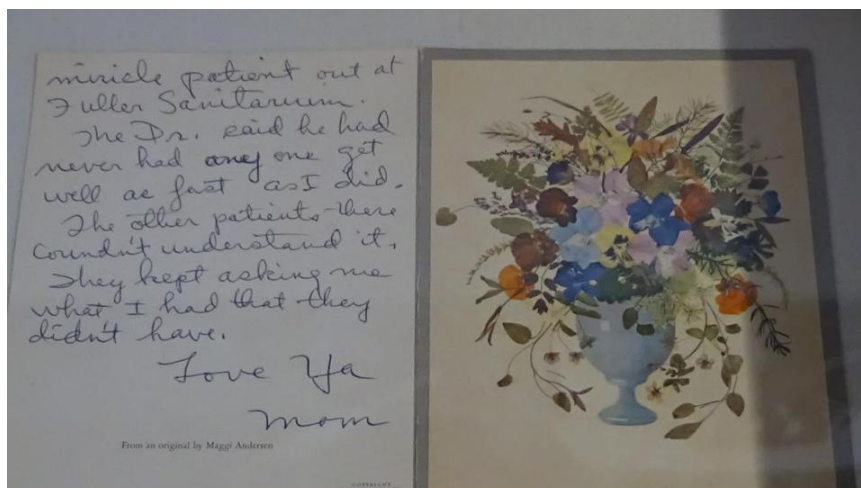 miricle patient out at
Fuller Sanitarium.
The Dr. said he had
never had any one get
well as fast as I did.
The other patients there
coundn't understand it.
They kept asking me
what I had that they
didn't have.
Love Ya
Mom
From an original by Maggi Andersen
COPYRIGHT